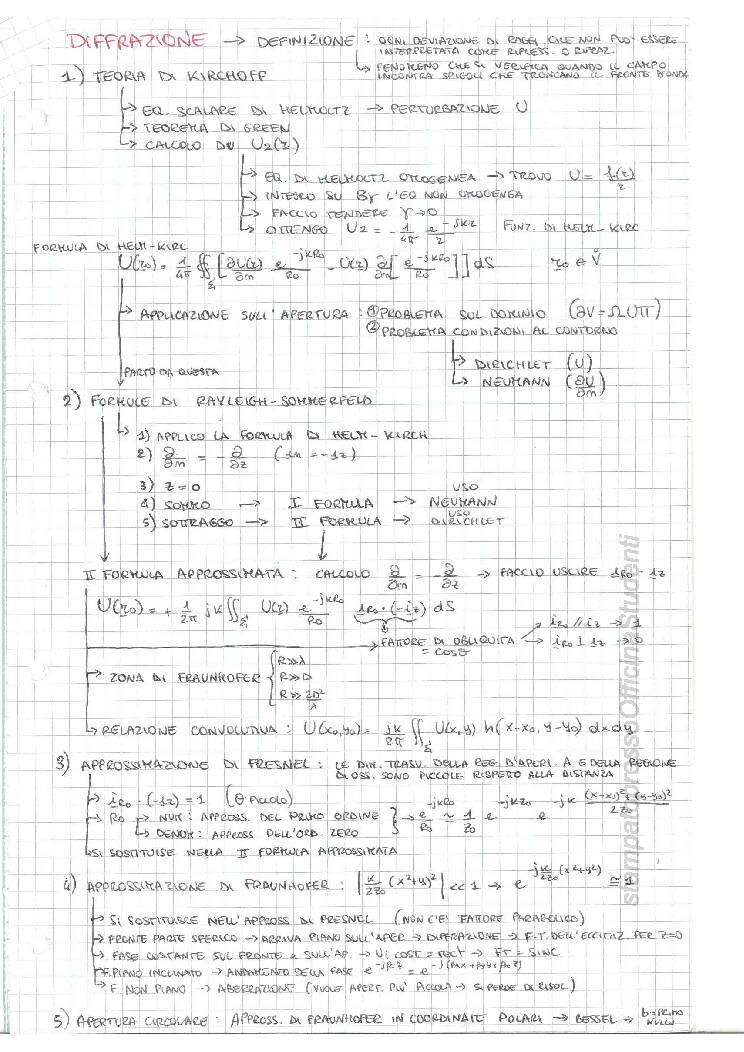 DIFFRAZIONE → DEFINIZIONE : OGNI DEVIAZIONE DI RAGGI CHE NON PUO' ESSERE
INTERPRETATA COME RIFLESS. O RIFRAZ.
↳ FENOMENO CHE SI VERIFICA QUANDO IL CAMPO
INCONTRA SPIGOLI CHE TRONCANO IL FRONTE D'ONDA
1) TEORIA DI KIRCHOFF
→ EQ. SCALARE DI HELMOLTZ → PERTURBAZIONE U
→ TEOREMA DI GREEN
→ CALCOLO DI U₂(r)
→ EQ. DI HELMOLTZ OMOGENEA → TROVO U = f(r)/r
→ INTEGRO SU Bγ L'EQ NON OMOGENEA
→ FACCIO TENDERE γ→0
→ OTTENGO U₂ = -1/4π e^-jkr/r FUNZ. DI HELM-KIRC
FORMULA DI HELM-KIRC
U(r₀) = 1/4π ∯ [∂U(r)/∂n e^-jkR₀/R₀ - U(r) ∂/∂n [e^-jkR₀/R₀]] dS r₀ ∈ V
→ APPLICAZIONE SULL'APERTURA : ① PROBLEMA SUL DOMINIO (∂V = Ω∪Π)
② PROBLEMA CONDIZIONI AL CONTORNO
→ DIRICHLET (U)
↳ NEUMANN (∂U/∂n)
PARTO DA QUESTA
2) FORMULE DI RAYLEIGH-SOMMERFELD
↳ 1) APPLICO LA FORMULA DI HELM-KIRCH
2) ∂/∂n = -∂/∂z (in = -iz)
3) z=0
4) SOMMO → I FORMULA → USO NEUMANN
5) SOTTRAGGO → II FORMULA → USO DIRICHLET
II FORMULA APPROSSIMATA : CALCOLO ∂/∂n = -∂/∂z → FACCIO USCIRE iR₀ · iz
U(r₀) = + 1/2π jk ∬ U(r) e^-jkR₀/R₀ iR₀·(-iz) dS
FATTORE DI OBLIQUITA = cosθ → iR₀ // iz → 1
→ iR₀ ⊥ iz → 0
→ ZONA DI FRAUNHOFER { R≫λ
R≫D
R≫2D²/λ
↳ RELAZIONE CONVOLUTIVA : U(x₀,y₀) = jk/2π ∬ U(x,y) h(x-x₀, y-y₀) dxdy
3) APPROSSIMAZIONE DI FRESNEL : LE DIM. TRASV. DELLA REG. D'APER. A E DELLA REGIONE
DI OSS. SONO PICCOLE RISPETTO ALLA DISTANZA
→ iR₀·(-iz) = 1 (θ PICCOLO)
→ R₀ → NUM : APPROSS. DEL PRIMO ORDINE } → e^-jkR₀/R₀ ≃ 1/z₀ e^-jkz₀ e^-jk (x-x₀)²+(y-y₀)²/2z₀
→ DENOM : APPROSS DELL'ORD. ZERO
↳ SI SOSTITUISE NELLA II FORMULA APPROSSIMATA
4) APPROSSIMAZIONE DI FRAUNHOFER : |k/2z₀ (x²+y)²| ≪ 1 → e^-jk/2z₀ (x²+y²) ≅ 1
→ SI SOSTITUISCE NELL'APPROSS DI FRESNEL (NON C'E' FATTORE PARABOLICO)
→ FRONTE PARTE SFERICO → ARRIVA PIANO SULL'APER → DIFFRAZIONE → F.T. DELL'ECCITAZ PER z=0
→ FASE COSTANTE SUL FRONTE E SULL'AP. → Ui COST = RECT → FT = SINC
→ F. PIANO INCLINATO → ANDAMENTO DELLA FASE e^-jβ·r = e^-j(βxx+βyy+βzz)
→ F. NON PIANO → ABERRAZIONE (VUOLE APERT. PIU' PICCOLA → SI PERDE DI RISOL.)
5) APERTURA CIRCOLARE : APPROSS. DI FRAUNHOFER IN COORDINATE POLARI → BESSEL → b=PRIMO NULLO
stampato presso Officina Studenti